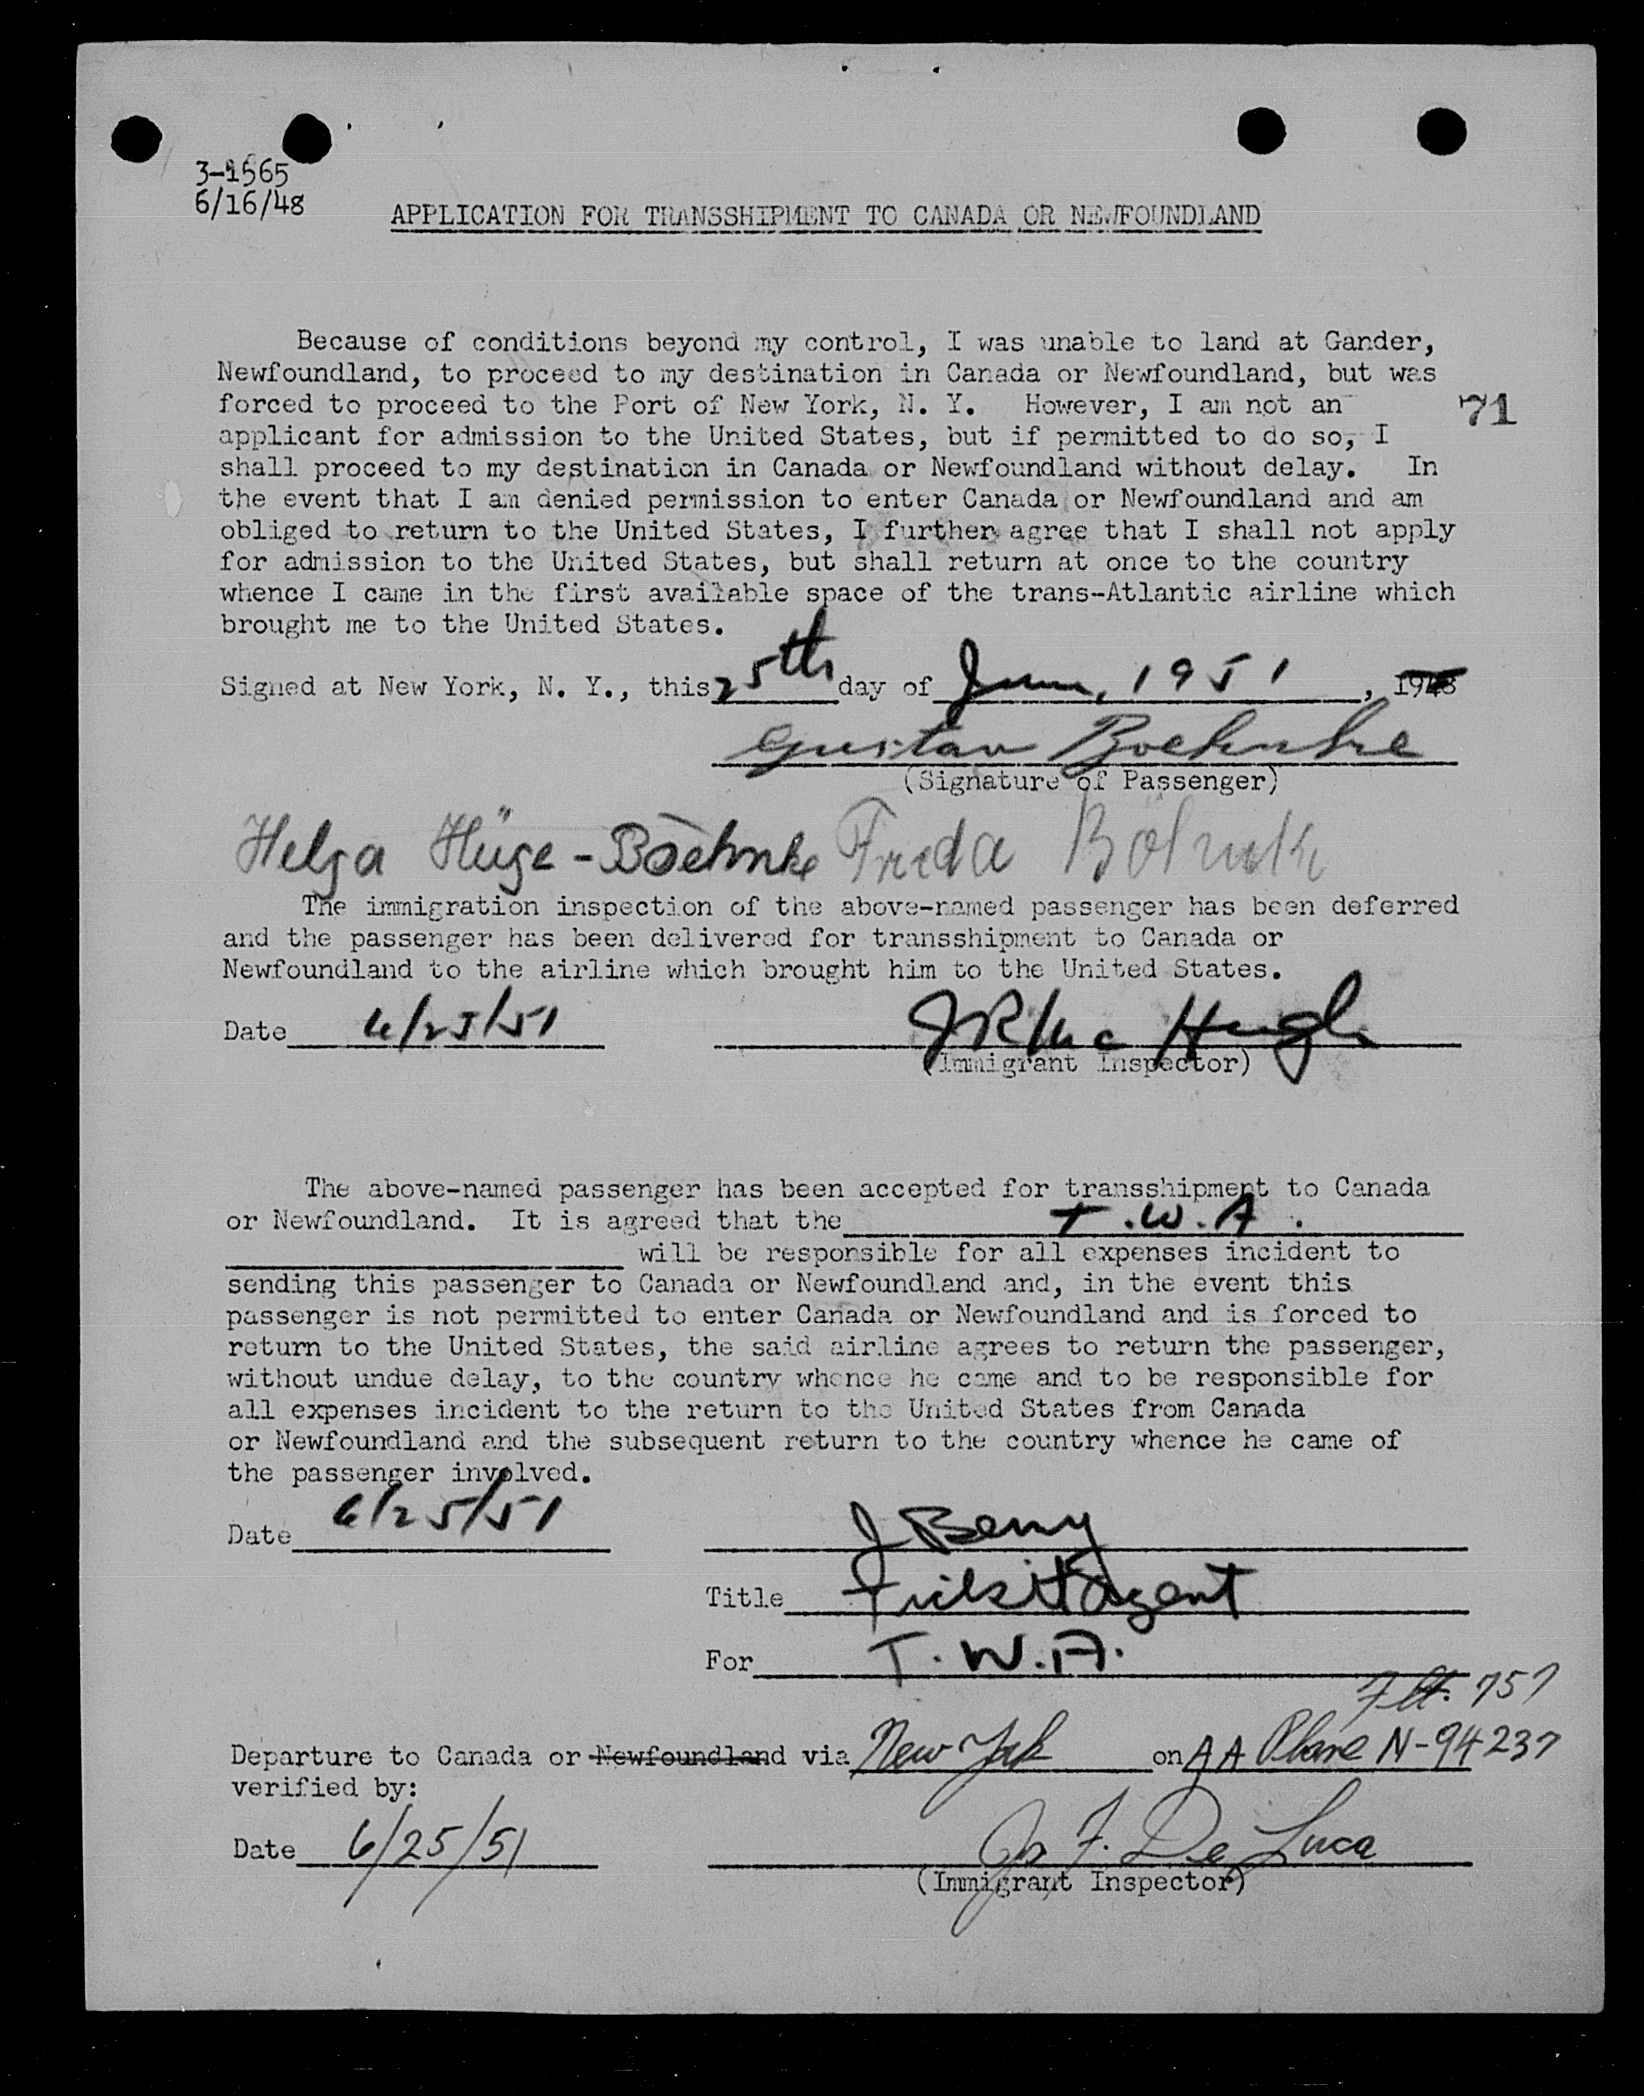 3-1565
6/16/48
APPLICATION FOR TRANSSHIPMENT TO CANADA OR NEWFOUNDLAND
Because of conditions beyond my control, I was unable to land at Gander,
Newfoundland, to proceed to my destination in Canada or Newfoundland, but was
forced to proceed to the Port of New York, N. Y. However, I am not an
71
applicant for admission to the United States, but if permitted to do so, I
shall proceed to my destination in Canada or Newfoundland without delay. In
the event that I am denied permission to enter Canada or Newfoundland and am
obliged to return to the United States, I further agree that I shall not apply
for admission to the United States, but shall return at once to the country
whence I came in the first available space of the trans-Atlantic airline which
brought me to the United States.
Signed at New York, N. Y., this 25th day of June, 1951, 1948
Gustav Boehnke
(Signature of Passenger)
Helga Hüge-Boehnke Frieda Böhnke
The immigration inspection of the above-named passenger has been deferred
and the passenger has been delivered for transshipment to Canada or
Newfoundland to the airline which brought him to the United States.
Date 6/25/51 Hugh
(Immigrant Inspector)
The above-named passenger has been accepted for transshipment to Canada
or Newfoundland. It is agreed that the T.W.A.
will be responsible for all expenses incident to
sending this passenger to Canada or Newfoundland and, in the event this
passenger is not permitted to enter Canada or Newfoundland and is forced to
return to the United States, the said airline agrees to return the passenger,
without undue delay, to the country whence he came and to be responsible for
all expenses incident to the return to the United States from Canada
or Newfoundland and the subsequent return to the country whence he came of
the passenger involved.
Date 6/25/51 J Berry
Title Ticket agent
For T.W.A.
Flt. 757
Departure to Canada or Newfoundland via New York on AA Plane N-94237
verified by:
Date 6/25/51 Jos F. De Luca
(Immigrant Inspector)